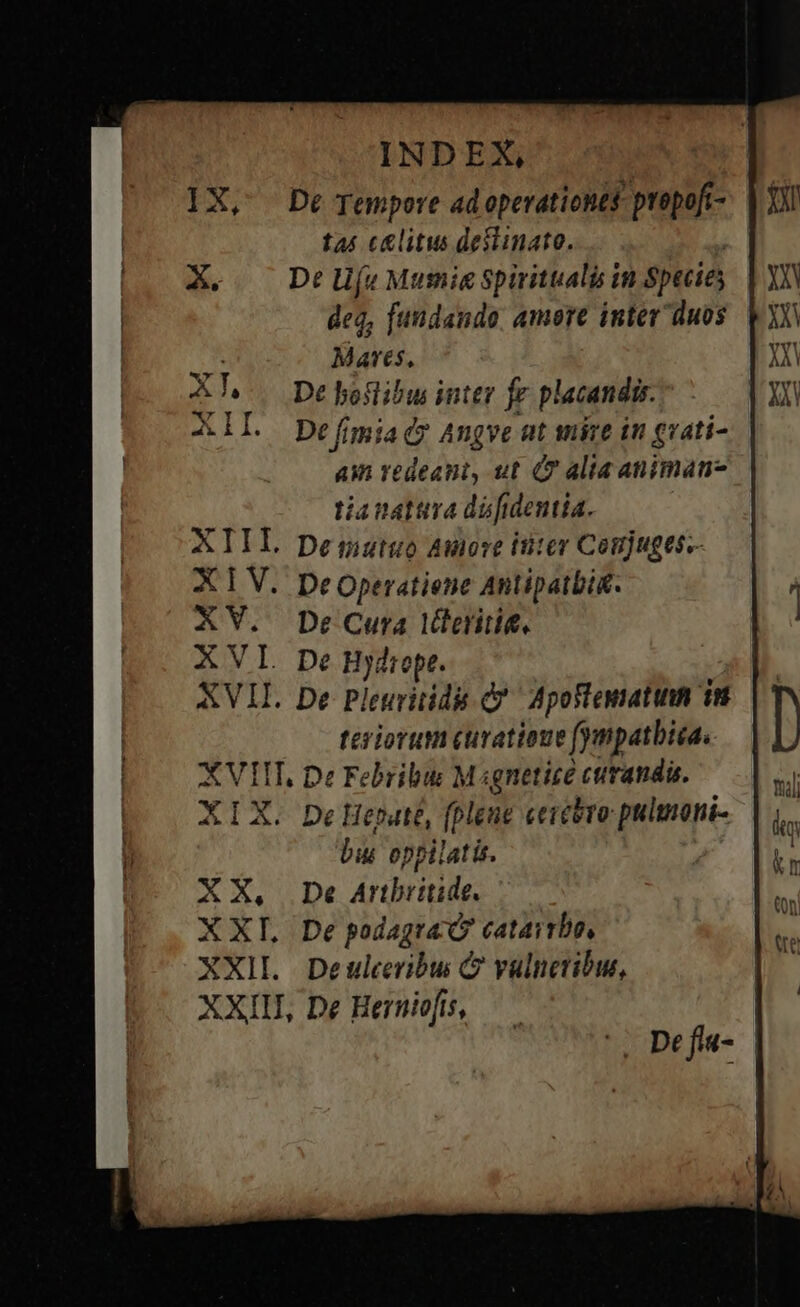 INDEX,
IX, De Tempore ad operationes propoſi-
tas cælitus deſtinato.
X. De Uſu Mumiæ Spiritualis in Specie,
deq, fundando amore inter duos
Mares.
XI. De hoſtibus inter ſe placandis.
XII. De ſimia & Angve ut mire in grati-
am redeant, ut & alia animan-
tia natura diſſidentia.
XIII. De mutuo Amore inter Conjuges.
XIV. De Operatione Antipathiæ.
XV. De Cura Icteritiæ.
XVI. De Hydrope.
XVII. De Pleuritidis & Apoſtematum in
teriorum curatione ſympathica.
XVIII, De Febribus Magneticè curandis.
XIX. De Hepate, ſplene cerebro pulmoni-
bus oppilatis.
XX, De Arthritide.
XXI, De podagra & catarrho,
XXII. De ulceribus & vulneribus,
XXIII, De Hernioſis,
De flu-